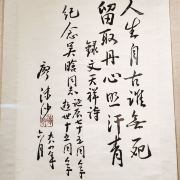 人生自古谁无死
留取丹心照汗青
录文天祥诗
纪念吴晗同志诞辰七十五周年
逝世十五周年
廖沫沙
一九八四年六月